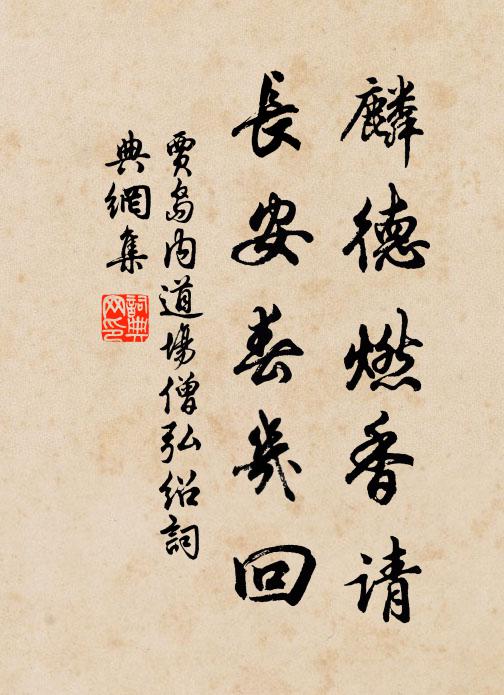 麟德燃香请
長安春幾回
賈島内道場僧弘紹詞
典網集
詞典網印